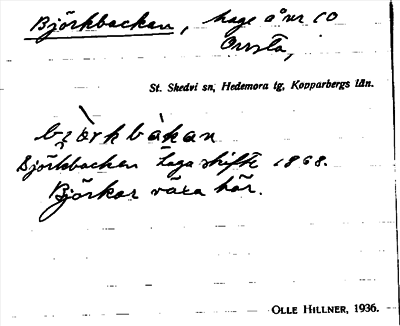 Björkbackan, hage å nr 10
Orrsta,
St. Skedvi sn, Hedemora tg, Kopparbergs län.
bjö̀rkbákan
Björkbacken Laga skifte 1868.
Björkar växa här.
OLLE HILLNER, 1936.